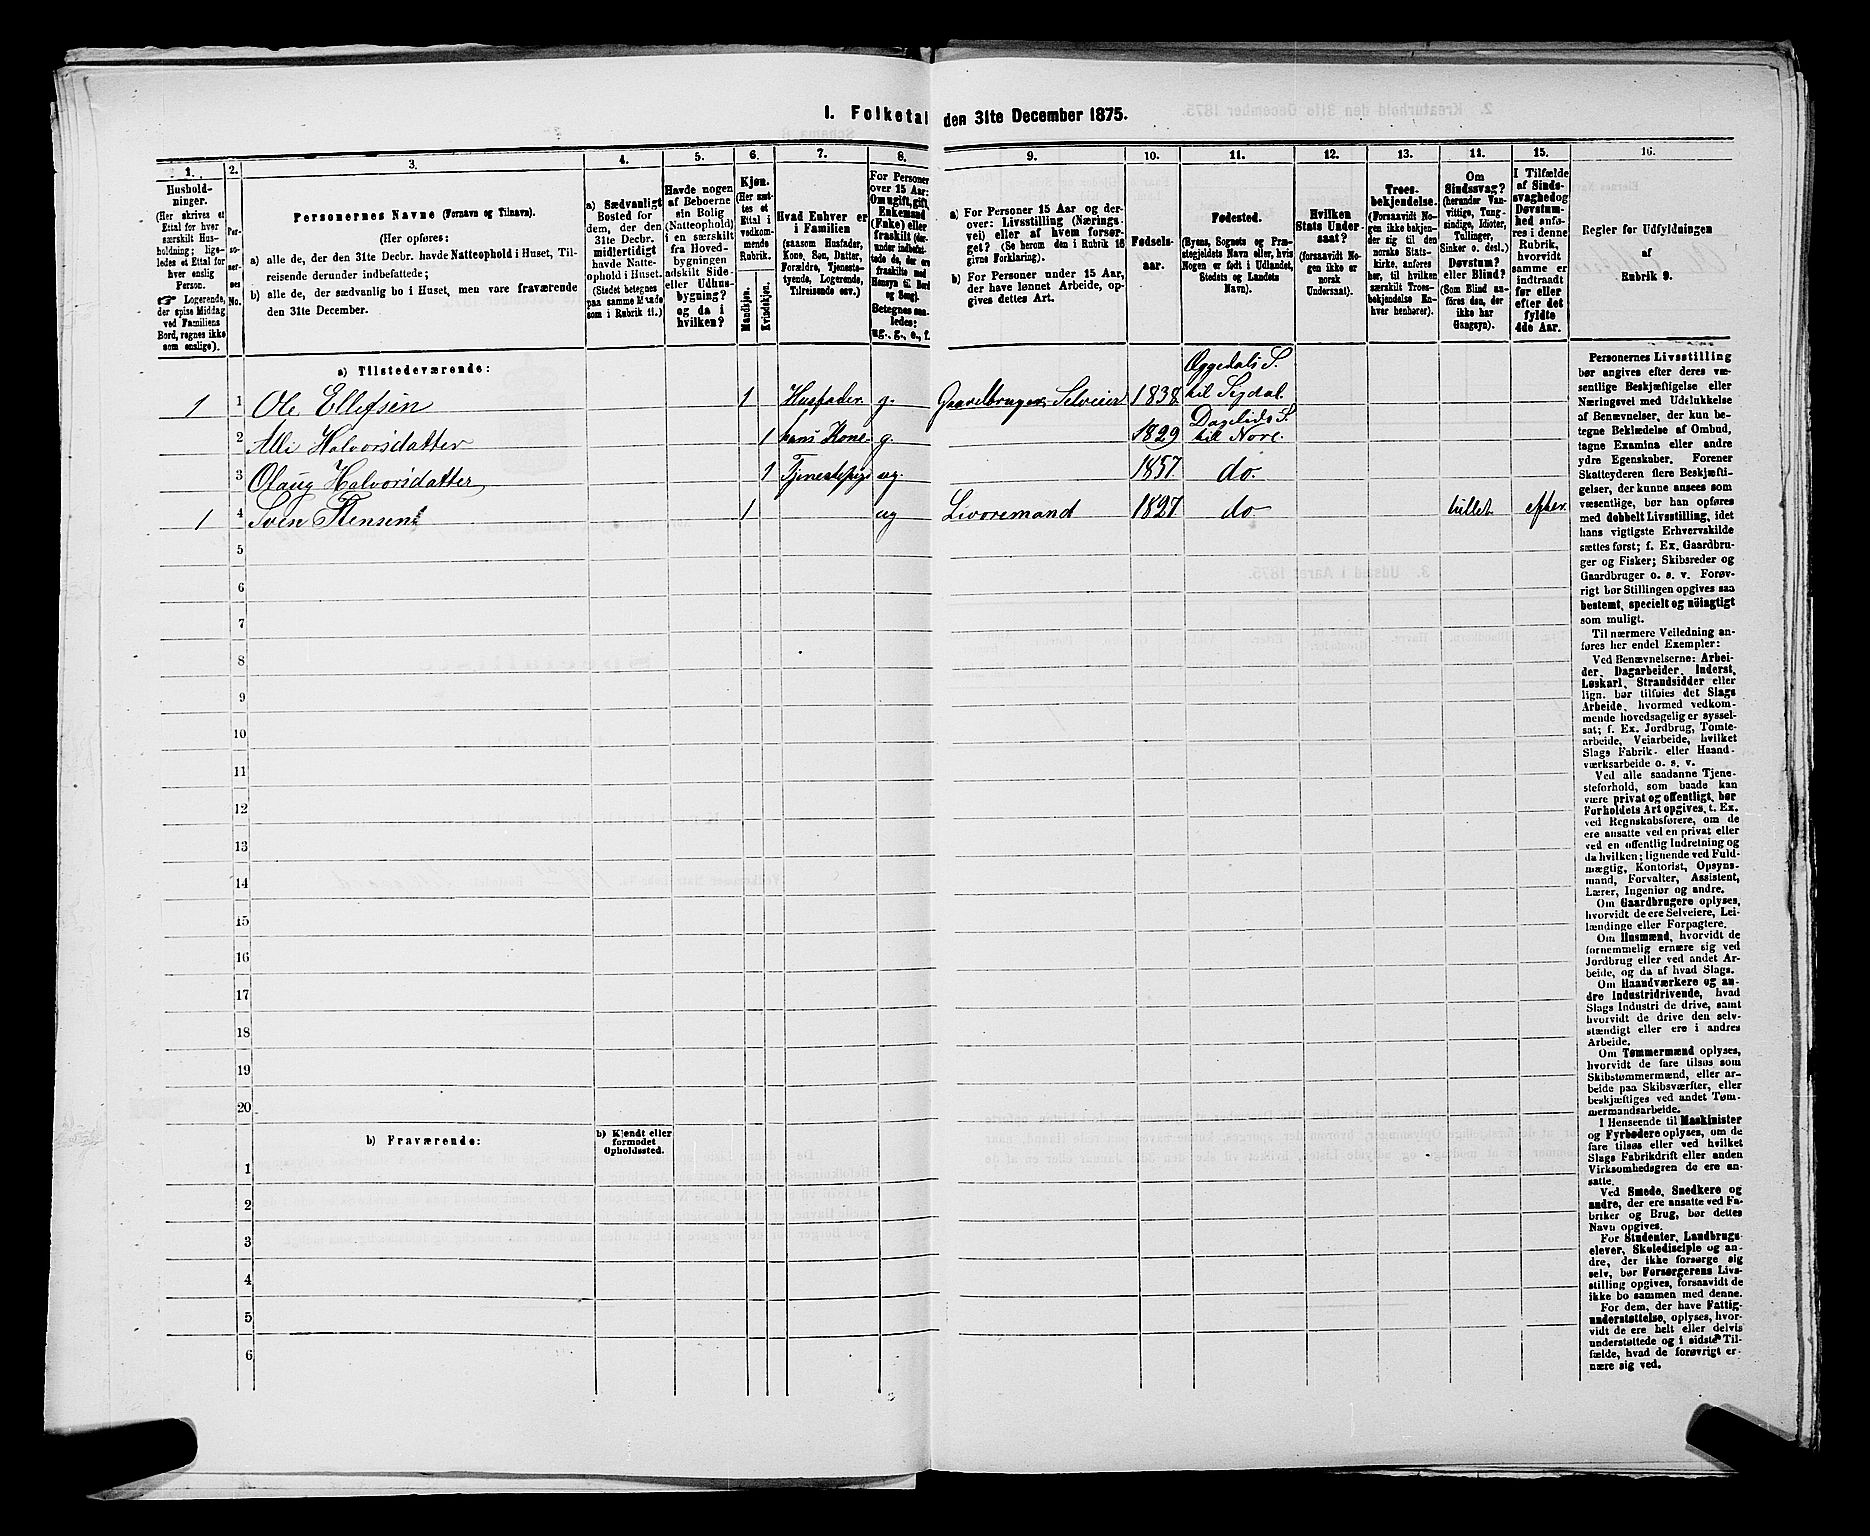 I. Folketal den 31te December 1875.
1. 2. 3. 4. 5. 6. 7. 8. 9. 10. 11. 12. 13. 14. 15. 16.
Hushold-
ninger.
(Her skrives et
Ettal for hver
særskilt Hus-
holdning; lige-
ledes et Ettal for
hver enslig
Person.
☞ Logerende,
der spise Middag
ved Familiens
Bord, regnes ikke
som enslige).
Per-
so-
ner-
nes
No.
Personernes Navne (Fornavn og Tilnavn).
(Her opføres:
a) alle de, der den 31te Decbr. havde Natteophold i Huset, Til-
reisende derunder indbefattede;
b) alle de, der sædvanlig bo i Huset, men vare fraværende
den 31te December.
a) Sædvanligt
Bosted for
dem, der den
31te Decbr.
midlertidigt
havde Natte-
ophold i Huset.
(Stedet betegnes
paa samme Maade
som i Rubrik 11.)
Havde nogen
af Beboerne
sin Bolig
(Natteophold)
i en særskilt
fra Hoved-
bygningen
adskilt Side-
eller Udhus-
bygning?
og da i
hvilken?
Kjøn.
(Her sæt-
tes et
Ettal i
vedkom-
mende
Rubrik.
Mandkjøn.
Kvindekjøn.
Hvad Enhver er
i Familien
(saasom Husfader,
Kone, Søn, Datter,
Forældre, Tjeneste-
tyende, Logerende,
Tilreisende osv.)
For Personer
over 15 Aar:
Om ugift, gift,
Enkemand
(Enke) eller
fraskilt (der-
under indbefat-
tede de, der ere
fraskilte med
Hensyn til Bord
og Seng).
Betegnes saa-
ledes:
ug., g., e., f.
a) For Personer 15 Aar og der-
over: Livsstilling (Nærings-
vei) eller af hvem forsør-
get? (Se herom den i Rubrik 16
givne Forklaring).
b) For Personer under 15 Aar,
der have lønnet Arbeide, op-
gives dettes Art.
Fødsels-
aar.
Fødested.
(Byens, Sognets og Præ-
stegjeldets Navn eller, hvis
Nogen er født i Udlandet,
Stedets og Landets
Navn).
Hvilken
Stats Under-
saat?
(forsaavidt No-
gen ikke er
norsk
Undersaat).
Troes-
bekjendelse.
(Forsaavidt No-
gen ikke bekjen-
der sig til den
norske Stats-
kirke, anføres
her, til hvilken
særskilt Troes-
bekjendelse En-
hver henhører).
Om
Sindssvag?
(herunder Van-
vittige, Tung-
sindige, Idioter,
Tullinger,
Sinker o. desl.)
Døvstum?
eller Blind?
(Som Blind an-
føres den, der
ikke har
Gangsyn).
I Tilfælde
af Sinds-
svaghed og
Døvstum-
hed anfø-
res i denne
Rubrik,
hvorvidt
samme er
indtraadt
før eller
efter det
fyldte
4de Aar.
Regler for Udfyldningen
af
Rubrik 9.
a) Tilstedeværende:
1 1 Ole Ellefsen 1 Husfader g. Gaardbruger Selveier 1838 Oggedals S. til Sigdal.
2 Alli Halvorsdatter 1 hans Kone g. 1829 Daglids S. till Nore.
3 Olaug Halvorsdatter 1 Tjenestepige ug. 1857 do.
1 4 Sven Stensen 1 ug Livøremand 1827 do tullet efter.
5
6
7
8
9
10
11
12
13
14
15
16
17
18
19
20
b) Fraværende:
b) Kjendt eller
formodet
Opholdssted.
1
2
3
4
5
6
Personernes Livsstilling
bør angives efter deres væ-
sentlige Beskjæftigelse eller
Næringsvei med Udelukkelse
af Benævnelser, der kun be-
tegne Beklædelse af Ombud,
tagne Examina eller andre
ydre Egenskaber. Forener
Skatteyderen flere Beskjæfti-
gelser, der kunne ansees som
væsentlige, bør han opføres
med dobbelt Livsstilling, idet
hans vigtigste Erhvervskilde
sættes først; f. Ex. Gaardbru-
ger og Fisker; Skibsreder og
Gaardbruger o. s. v. Forøv-
rigt bør Stillingen opgives saa
bestemt, specielt og nöiagtigt
som muligt.
Til nærmere Veiledning an-
føres her endel Exempler:
Ved Benævnelserne: Arbei-
der, Dagarbeider, Inderst,
Løskarl, Strandsidder eller
lign. bør tilføies det Slags
Arbeide, hvormed vedkom-
mende hovedsagelig er syssel-
sat; f. Ex. Jordbrug, Tomte-
arbeide, Veiarbeide, hvilket
Slags Fabrik- eller Haand-
værksarbeide o. s. v.
Ved alle saadanne Tjene-
steforhold, som baade kan
være privat og offentligt, bør
Forholdets Art opgives, t. Ex.
ved Regnskabsførere, om de
ere ansatte ved en privat eller
ved en offentlig Indretning og
da hvilken; lignende ved Fuld-
mægtig, Kontorist, Opsyns-
mand, Forvalter, Assistent,
Lærer, Ingeniør og andre.
Om Gaardbrugere oplyses,
hvorvidt de ere Selveiere, Lei-
lændinge eller Forpagtere.
Om Husmænd, hvorvidt de
fornemmelig ernære sig ved
Jordbrug eller ved andet Ar-
beide, og da af hvad Slags.
Om Haandværkere og an-
dre Industridrivende, hvad
Slags Industri de drive, samt
hvorvidt de drive den selv-
stændigt eller ere i andres
Arbeide.
Om Tømmermænd oplyses,
hvorvidt de fare tilsøs som
Skibstømmermænd, eller ar-
beide paa Skibsværfter, eller
beskjæftiges ved andet Tøm-
mermandsarbeide.
I Henseende til Maskinister
og Fyrbødere oplyses, om de
fare tilsøs eller ved hvilket
Slags Fabrikdrift eller anden
Virksomhedsgren de ere an-
satte.
Ved Smede, Snedkere og
andre, der ere ansatte ved Fa-
briker og Brug, bør dettes
Navn opgives.
For Studenter, Landbrugs-
elever, Skoledisciple og an-
dre, der ikke forsørge sig
selv, bør Forsørgerens Livs-
stilling opgives, forsaavidt de
ikke bo sammen med denne.
For dem, der have Fattig-
understøttelse, oplyses, hvor-
vidt de ere helt eller delvis
understøttede og i sidste Til-
fælde, hvad de forøvrigt er-
nære sig ved.